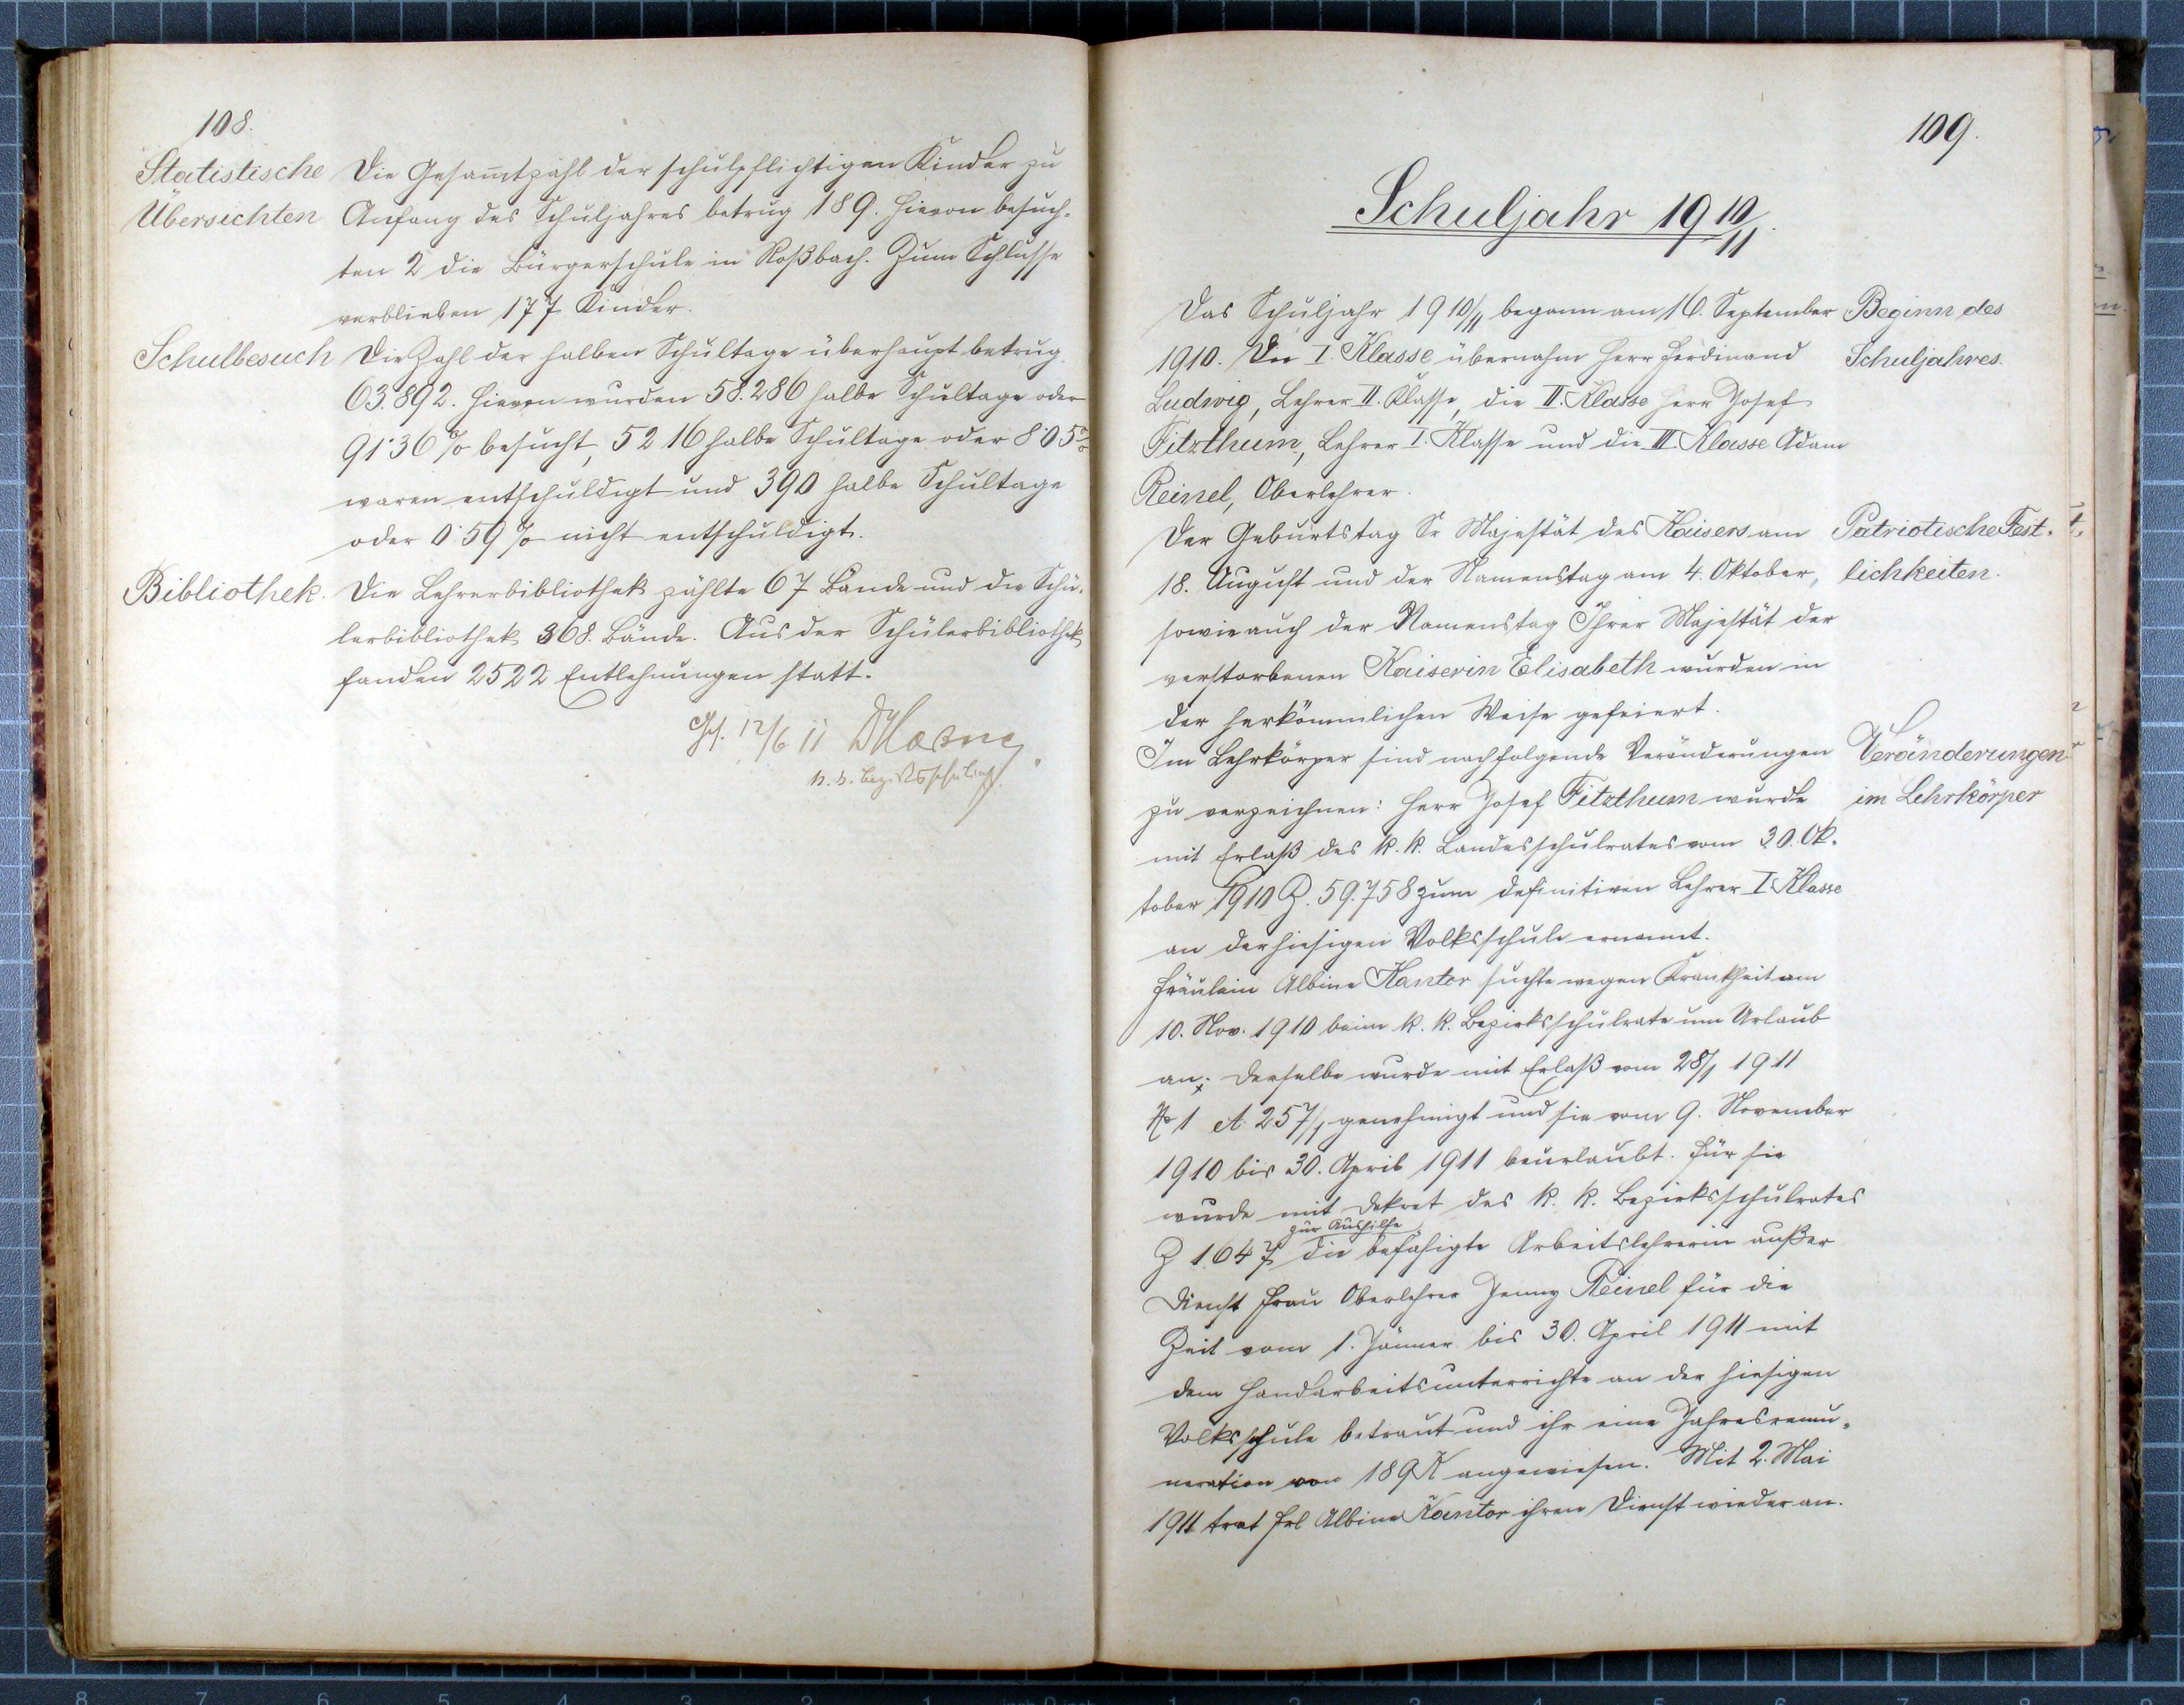 108.
Statistische
Übersichten
Die Gesamtzahl der schulpflichtigen Kinder zu
Anfang des Schuljahres betrug 189. Hievon besuch-
ten 2 die Bürgerschule in Roßbach. Zum Schlusse
verblieben 177 Kinder.
Schulbesuch
Die Zahl der halben Schultage überhaupt betrug
63.892. Hievon wurden 58.286 halbe Schultage oder
91·36 % besucht, 5216 halbe Schultage oder 8·05 %
waren entschuldigt und 390 halbe Schultage
oder 0·59 % nicht entschuldigt.
Bibliothek.
Die Lehrerbibliothek zählte 67 Bände und die Schü-
lerbibliothek 368. Bände. Aus der Schülerbibliothek
fanden 2522 Entlehnungen statt.
Ges. 12/6 11
k. k. Bezirksschulinsp.
109.
Schuljahr 1910/11.
Das Schuljahr 1910/11 begann am 16. September
1910. Die I. Klasse übernahm Herr Ferdinand
Ludwig, Lehrer II. Klasse, die II. Klasse Herr Josef
Fitzthum, Lehrer I. Klasse und die III. Klasse Adam
Reinel, Oberlehrer.
Beginn des
Schuljahres.
Der Geburtstag Sr Majestät des Kaisers am
18. August und der Namenstag am 4. Oktober,
sowie auch der Namenstag Ihrer Majestät der
verstorbenen Kaiserin Elisabeth wurden in
der herkömmlichen Weise gefeiert.
Patriotische Fest-
lichkeiten.
Im Lehrkörper sind nachfolgende Veränderungen
zu verzeichnen: Herr Josef Fitzthum wurde
mit Erlaß des k. k. Landesschulrates vom 30. Ok-
tober 1910 Z. 59.758 zum definitiven Lehrer I. Klasse
an der hiesigen Volksschule ernannt.
Veränderungen
im Lehrkörper
Fräulein Albine Kantor suchte wegen Krankheit am
10. Nov. 1910 beim k. k. Bezirksschulrate um Urlaub
an. Derselbe wurde mit Erlaß vom 28/1 1911
No 1 A. 257/1 genehmigt und sie vom 9. November
1910 bis 30. April 1911 beurlaubt. Für sie
wurde mit Dekret des k. k. Bezirksschulrates
zur Aushilfe
Z 1647 die befähigte Arbeitslehrerin außer
Dienst Frau Oberlehrer Jenny Reinel für die
Zeit vom 1. Jänner bis 30. April 1911 mit
dem Handarbeitsunterrichte an der hiesigen
Volksschule betraut und ihr eine Jahresremu-
neration von 189 K angewiesen. Mit 2. Mai
1911 trat Frl Albine Kantor ihren Dienst wieder an.